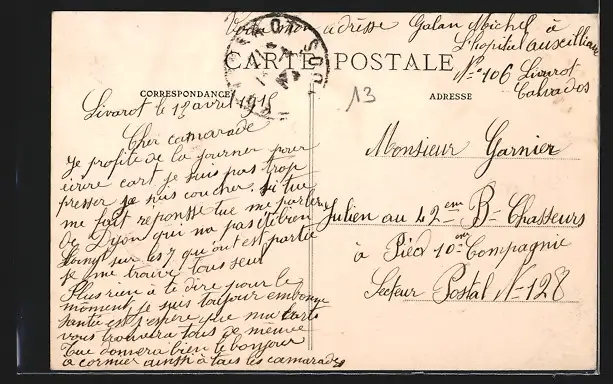 Voici mon adresse Galan Michel à
l'hopital auxcilliaire
N° 106 Livarot
Calvados
CARTE POSTALE
CORRESPONDANCE
ADRESSE
13
Livarot le 18 avril 1915
Cher camarade
Je profite de la journer pour
écrire cart je suis pas trop
presser je suis coucher si tue
me fait reponsse tue me parlera
de Dyon qui na pas été bien
loingt sur les 7 qu'ont est partie
je me trouve tous seul
Plus rien à te dire pour le
moment je suis toujour en bonne
santée est j'espère que ma carte
vous trouvera tous de même
Tue donnera bien le bonjour
a cormier ainsi à tous les camarades
Monsieur Garnier
Julien au 42eme B= Chasseurs
à Pied 10eme Compagnie
Secteur Postal N° 128